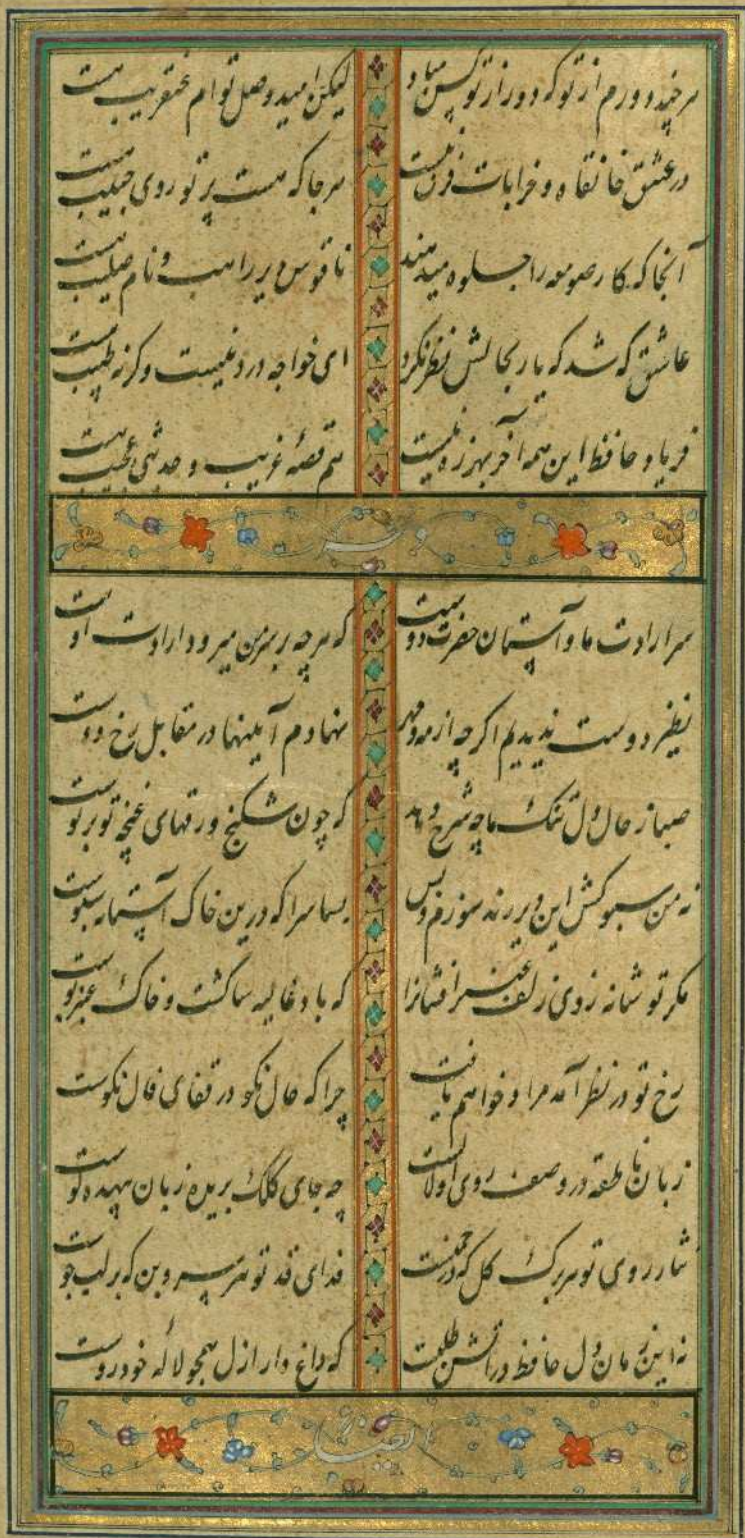 هرچند دورم از تو که دور از تو کس مباد لیکن امید وصل توام عنقریب هست
در عشق خانقاه و خرابات فرق نیست هر جا که هست پرتو روی حبیب هست
آنجا که کار صومعه را جلوه میدهند ناقوس دیر راهب و نام صلیب هست
عاشق که شد که یار بحالش نظر نکرد ای خواجه درد نیست وگرنه طبیب هست
فریاد حافظ این همه آخر بهرزه نیست هم قصهٔ غریب و حدیثی عجیب هست
وله
سر ارادت ما و آستان حضرت دوست که هرچه بر سر من میرود ارادت اوست
نظیر دوست ندیدیم اگرچه از مه و مهر نهادم آینها در مقابل رخ دوست
صبا ز حال دل تنگ ما چه شرح دهد که چون شکنج ورقهای غنچه تو بر توست
نه من سبوکش این دیر رند سوزم و بس بسا سرا که درین خاک آستانه سبوست
مکر تو شانه زدی زلف عنبر افشانرا که باد غالیه سا کشت و خاک عنبر بوست
رخ تو در نظر آمد مراد خواهم یافت چرا که حال نکو در قفای فال نکوست
زبان ناطقه در وصف روی او لالست چه جای کلک بریده زبان بیهده کوست
نثار روی تو هر برک کل که در چمنست فدای قد تو هر سرو بن که بر لب جوست
نه این زمان دل حافظ در آتش طلبست که داغ دار ازل همچو لالهٔ خودروست
ایضا